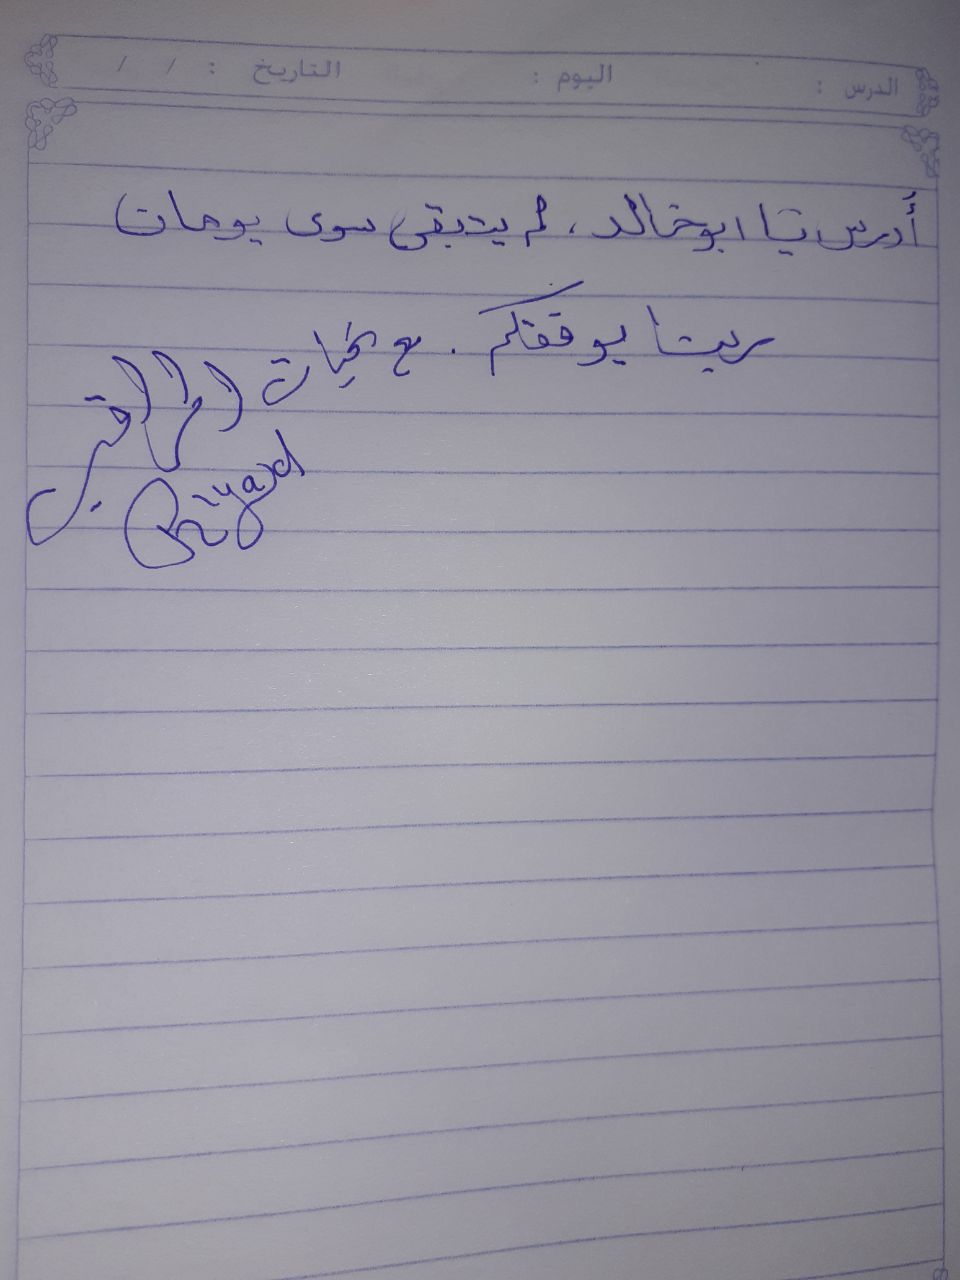 الدرس : اليوم : التاريخ : / /
أدرس يا ابو خالد، لم يتبقى سوى يومان
ربنا يوفقكم. مع تحيات
Riyad